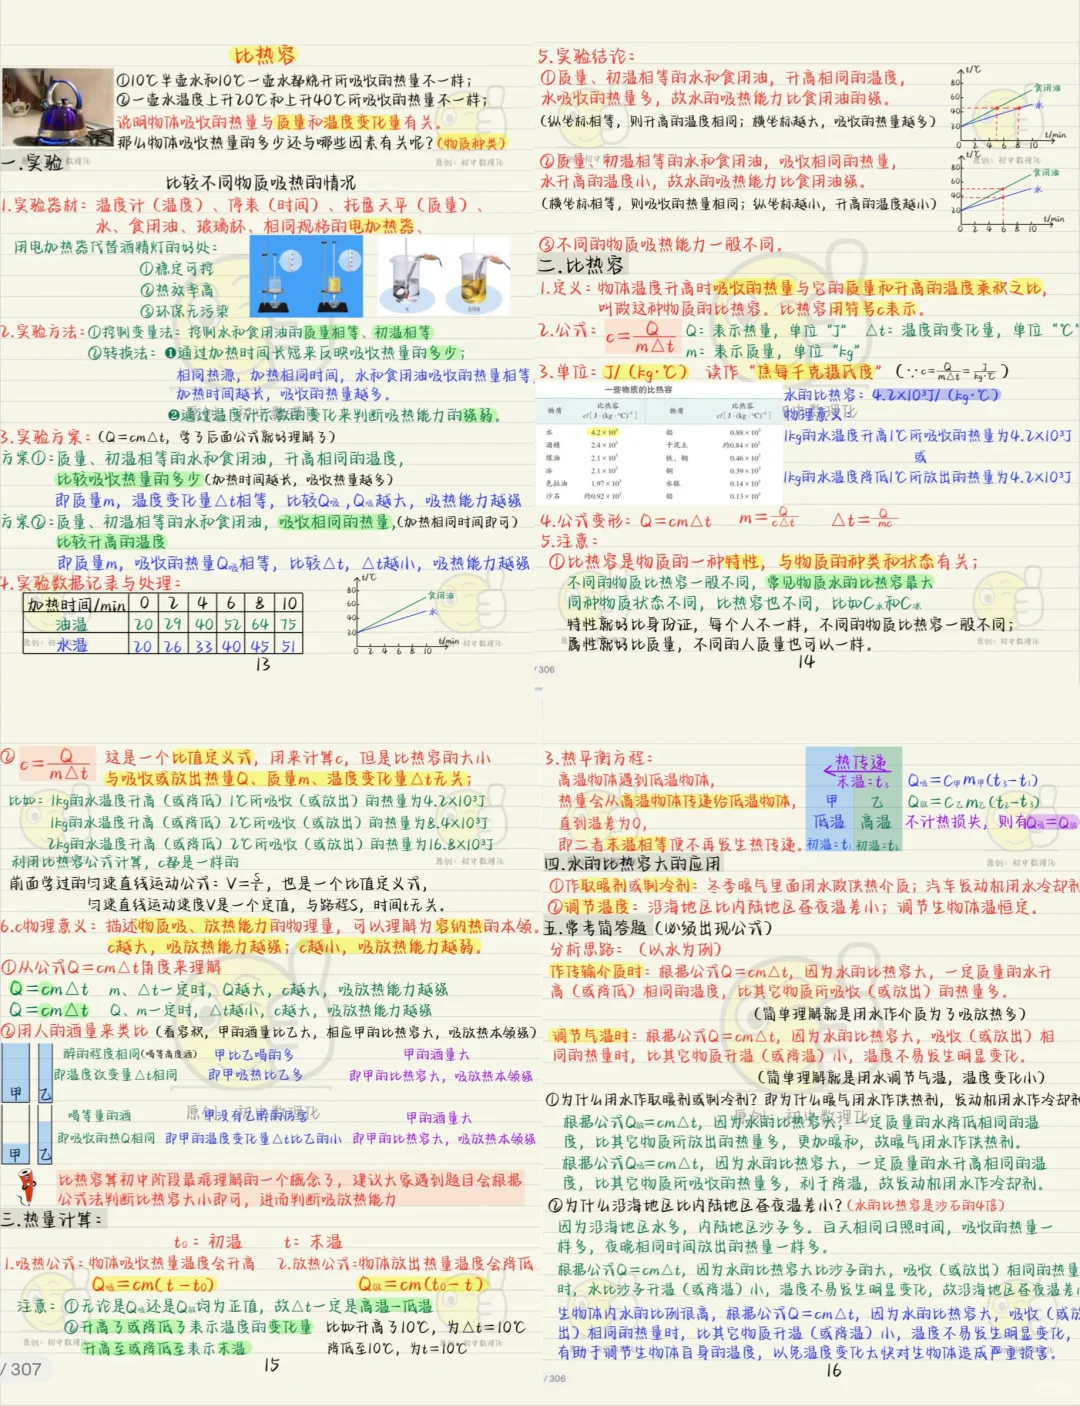 比热容
①10℃半壶水和10℃一壶水都烧开所吸收的热量不一样；
②一壶水温度上升20℃和上升40℃所吸收的热量不一样；
说明物体吸收的热量与质量和温度变化量有关。
那么物体吸收热量的多少还与哪些因素有关呢？(物质种类)
一.实验
比较不同物质吸热的情况
1.实验器材：温度计（温度）、停表（时间）、托盘天平（质量）、
水、食用油、玻璃杯、相同规格的电加热器、
用电加热器代替酒精灯的好处：
①稳定可控
②热效率高
③环保无污染
2.实验方法：①控制变量法：控制水和食用油的质量相等、初温相等
②转换法：❶通过加热时间长短来反映吸收热量的多少；
相同热源，加热相同时间，水和食用油吸收的热量相等，
加热时间越长，吸收的热量越多。
❷通过温度计示数的变化来判断吸热能力的强弱。
3.实验方案：(Q=cm△t，学了后面公式就好理解了)
方案①：质量、初温相等的水和食用油，升高相同的温度，
比较吸收热量的多少(加热时间越长，吸收热量越多)
即质量m，温度变化量△t相等，比较Q吸，Q吸越大，吸热能力越强
方案②：质量、初温相等的水和食用油，吸收相同的热量，(加热相同时间即可)
比较升高的温度
即质量m，吸收的热量Q吸相等，比较△t，△t越小，吸热能力越强
4.实验数据记录与处理：
加热时间/min 0 2 4 6 8 10
油温 20 29 40 52 64 75
水温 20 26 33 40 45 51
t/℃
80
60
40
20
食用油
水
0 2 4 6 8 10 t/min
13
5.实验结论：
①质量、初温相等的水和食用油，升高相同的温度，
水吸收的热量多，故水的吸热能力比食用油的强。
(纵坐标相等，则升高的温度相同；横坐标越大，吸收的热量越多)
t/℃
80
60
40
20
食用油
水
0 2 4 6 8 10 t/min
②质量、初温相等的水和食用油，吸收相同的热量，
水升高的温度小，故水的吸热能力比食用油强。
(横坐标相等，则吸收的热量相同；纵坐标越小，升高的温度越小)
t/℃
80
60
40
20
食用油
水
0 2 4 6 8 10 t/min
③不同的物质吸热能力一般不同。
二.比热容
1.定义：物体温度升高时吸收的热量与它的质量和升高的温度乘积之比，
叫做这种物质的比热容。比热容用符号c表示。
2.公式：c=Q/m△t Q：表示热量，单位“J” △t：温度的变化量，单位“℃”
m：表示质量，单位“kg”
3.单位：J/(kg·℃) 读作“焦每千克摄氏度” (∵c=Q/m△t=J/kg·℃)
一些物质的比热容
物质 比热容 c/[J·(kg·℃)⁻¹] 物质 比热容 c/[J·(kg·℃)⁻¹]
水 4.2×10³ 铝 0.88×10³
酒精 2.4×10³ 干泥土 约0.84×10³
煤油 2.1×10³ 铁、钢 0.46×10³
冰 2.1×10³ 铜 0.39×10³
色拉油 1.97×10³ 水银 0.14×10³
沙石 约0.92×10³ 铅 0.13×10³
水的比热容：4.2×10³J/(kg·℃)
物理意义：
1kg的水温度升高1℃所吸收的热量为4.2×10³J
或
1kg的水温度降低1℃所放出的热量为4.2×10³J
4.公式变形：Q=cm△t m=Q/c△t △t=Q/mc
5.注意：
①比热容是物质的一种特性，与物质的种类和状态有关；
不同的物质比热容一般不同，常见物质水的比热容最大
同种物质状态不同，比热容也不同，比如C水和C冰
特性就好比身份证，每个人不一样，不同的物质比热容一般不同；
属性就好比质量，不同的人质量也可以一样。
14
/306
② c=Q/m△t 这是一个比值定义式，用来计算c，但是比热容的大小
与吸收或放出热量Q、质量m、温度变化量△t无关；
比如：1kg的水温度升高（或降低）1℃所吸收（或放出）的热量为4.2×10³J
1kg的水温度升高（或降低）2℃所吸收（或放出）的热量为8.4×10³J
2kg的水温度升高（或降低）2℃所吸收（或放出）的热量为16.8×10³J
利用比热容公式计算，c都是一样的
前面学过的匀速直线运动公式：V=S/t，也是一个比值定义式，
匀速直线运动速度V是一个定值，与路程S，时间t无关。
6.c物理意义：描述物质吸、放热能力的物理量，可以理解为容纳热的本领。
c越大，吸放热能力越强；c越小，吸放热能力越弱。
①从公式Q=cm△t角度来理解
Q=cm△t m、△t一定时，Q越大，c越大，吸放热能力越强
Q=cm△t Q、m一定时，△t越小，c越大，吸放热能力越强
②用人的酒量来类比（看容积，甲的酒量比乙大，相应甲的比热容大，吸放热本领强）
甲 乙
醉的程度相同(喝等高度酒) 甲比乙喝的多 甲的酒量大
即温度改变量△t相同 即甲吸热比乙多 即甲的比热容大，吸放热本领强
甲 乙
喝等量的酒 甲没有乙醉的厉害 甲的酒量大
即吸收的热Q相同 即甲的温度变化量△t比乙的小 即甲的比热容大，吸放热本领强
比热容算初中阶段最难理解的一个概念了，建议大家遇到题目会根据
公式法判断比热容大小即可，进而判断吸放热能力
三.热量计算：
t₀：初温 t：末温
1.吸热公式：物体吸收热量温度会升高 2.放热公式：物体放出热量温度会降低
Q吸=cm(t-t₀) Q放=cm(t₀-t)
注意：①无论是Q吸还是Q放均为正值，故△t一定是高温-低温
②升高了或降低了表示温度的变化量 比如升高了10℃，为△t=10℃
升高至或降低至表示末温 降低至10℃，为t=10℃
15
/307
3.热平衡方程：
高温物体遇到低温物体，
热量会从高温物体传递给低温物体，
直到温差为0，
即二者末温相等便不再发生热传递。
热传递
末温：t₃
甲 乙
低温 高温
初温：t₁ 初温：t₂
Q吸=C甲m甲(t₃-t₁)
Q放=C乙m乙(t₂-t₃)
不计热损失，则有Q吸=Q放
四.水的比热容大的应用
①作取暖剂或制冷剂：冬季暖气里面用水做供热介质；汽车发动机用水冷却剂
②调节温度：沿海地区比内陆地区昼夜温差小；调节生物体温恒定。
五.常考简答题（必须出现公式）
分析思路：（以水为例）
作传输介质时：根据公式Q=cm△t，因为水的比热容大，一定质量的水升
高（或降低）相同的温度，比其它物质所吸收（或放出）的热量多。
(简单理解就是用水作介质为了吸放热多)
调节气温时：根据公式Q=cm△t，因为水的比热容大，吸收（或放出）相
同的热量时，比其它物质升温（或降温）小，温度不易发生明显变化。
(简单理解就是用水调节气温，温度变化小)
①为什么用水作取暖剂或制冷剂？即为什么暖气用水作供热剂，发动机用水作冷却剂
根据公式Q放=cm△t，因为水的比热容大，一定质量的水降低相同的温
度，比其它物质所放出的热量多，更加暖和，故暖气用水作供热剂。
根据公式Q吸=cm△t，因为水的比热容大，一定质量的水升高相同的温
度，比其它物质所吸收的热量多，利于降温，故发动机用水作冷却剂。
②为什么沿海地区比内陆地区昼夜温差小？(水的比热容是沙石的4倍)
因为沿海地区水多，内陆地区沙子多。白天相同日照时间，吸收的热量一
样多，夜晚相同时间放出的热量一样多。
根据公式Q=cm△t，因为水的比热容大比沙子的大，吸收（或放出）相同的热量
时，水比沙子升温（或降温）小，温度不易发生明显变化，故沿海地区昼夜温差小
生物体内水的比例很高，根据公式Q=cm△t，因为水的比热容大，吸收（或放
出）相同的热量时，比其它物质升温（或降温）小，温度不易发生明显变化，
有助于调节生物体自身的温度，以免温度变化太快对生物体造成严重损害。
16
/306
原创：初中数理化